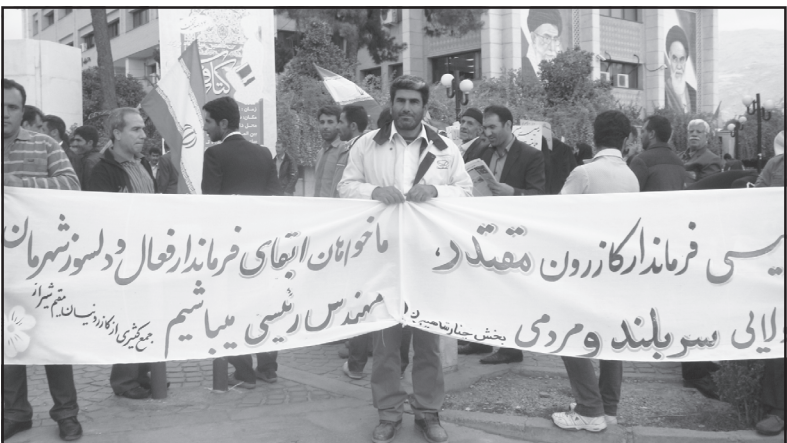 یسی فرماندار کازرون مقتدر،
ولایی سربلند و مردمی بخش
ما خواهان ابقای فرماندار فعال و دلسوز شهرمان
مهندس رئیسی میباشیم جمع کثیری از کازرونیان مقیم شیراز